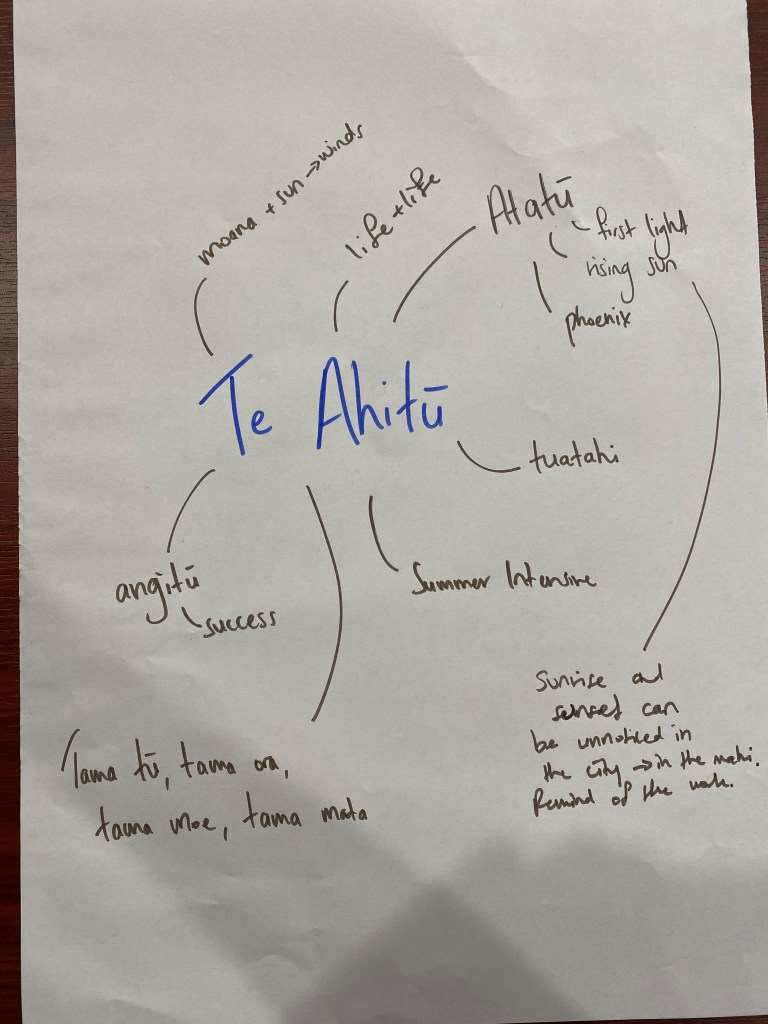 moana + sun → winds
life + life
Atatū
first light
rising sun
phoenix
Te Ahitū
tuatahi
angitū
success
Summer Intensive
Tama tū, tama ora,
tama moe, tama mata
Sunrise and
sunset can
be unnoticed in
the city → in the mahi.
Remind of the work.